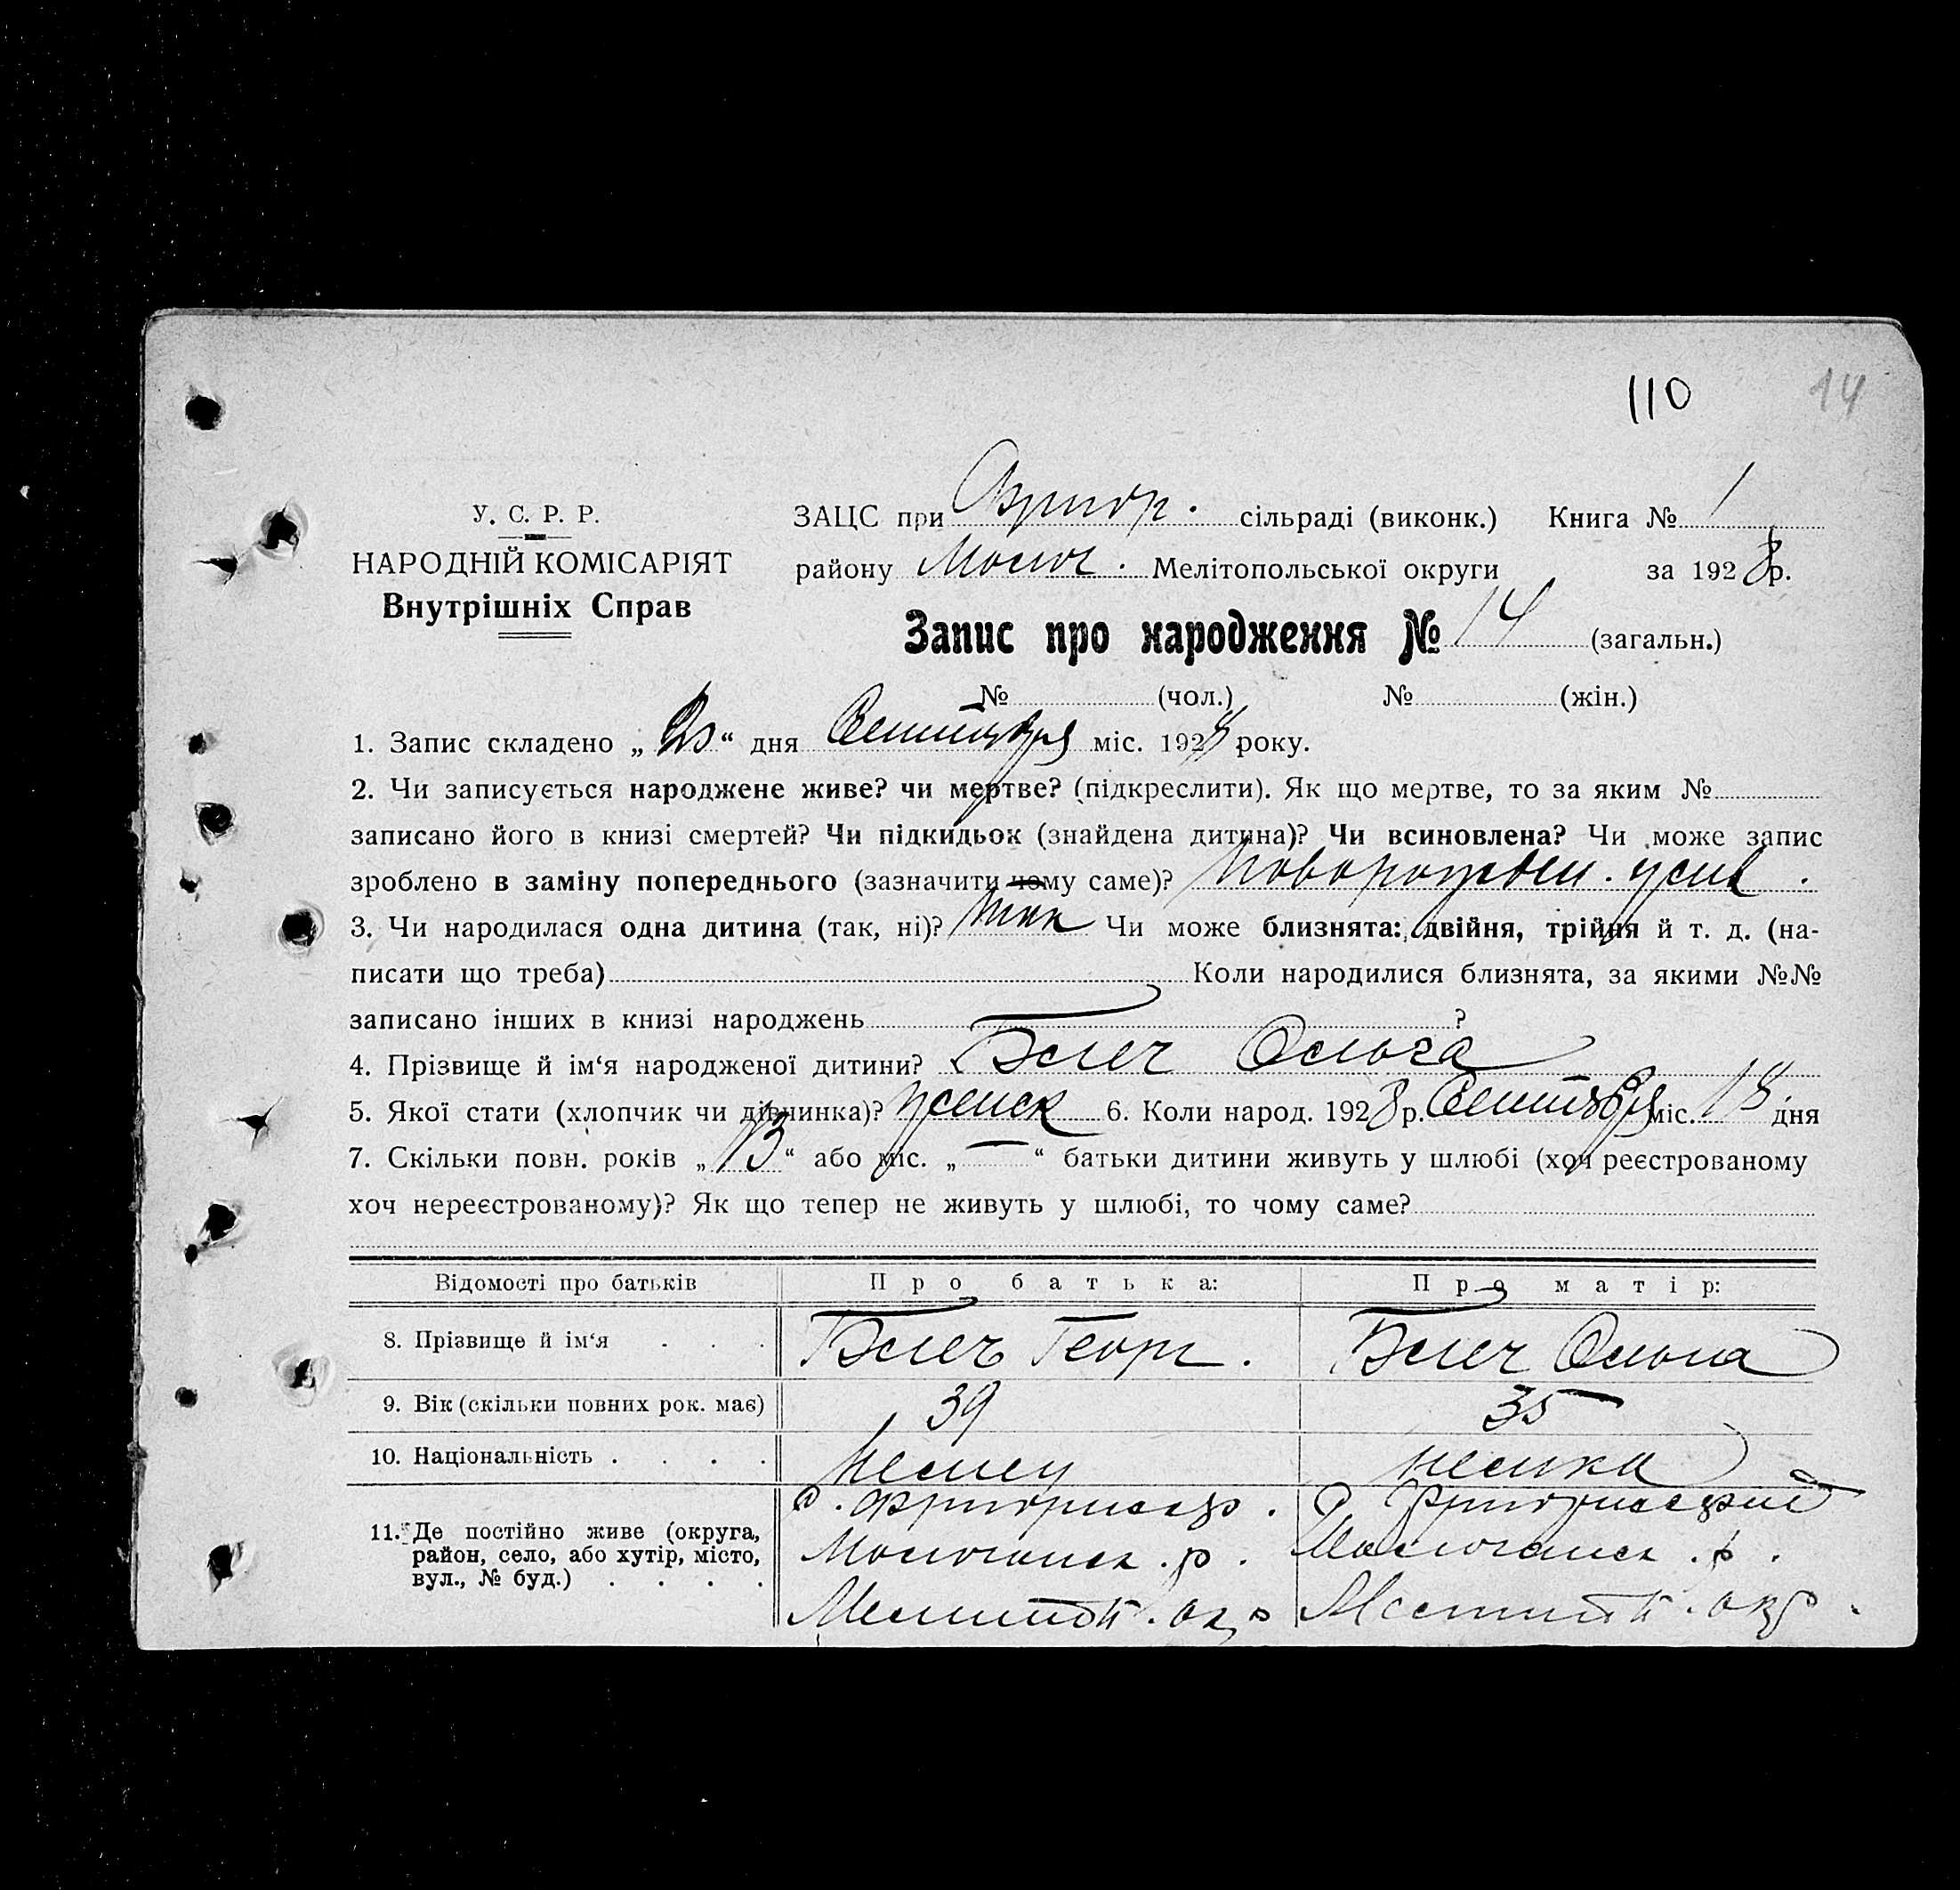 110 14
У. С. Р. Р.
НАРОДНІЙ КОМІСАРІЯТ
Внутрішніх Справ
ЗАЦС при сільраді (виконк.) Книга № 1
району Молоч. Мелітопольської округи за 1928р.
Запис про народження № 14 (загальн.)
№ (чол.) № (жін.)
1. Запис складено „ “ дня Сентября міс. 1928 року.
2. Чи записується народжене живе? чи мертве? (підкреслити). Як що мертве, то за яким №
записано його в книзі смертей? Чи підкидьок (знайдена дитина)? Чи всиновлена? Чи може запис
зроблено в заміну попереднього (зазначити чому саме)?
3. Чи народилася одна дитина (так, ні)? так Чи може близнята: двійня, трійня й т. д. (на-
писати що треба) Коли народилися близнята, за якими №№
записано інших в книзі народжень ?
4. Прізвище й ім‘я народженої дитини? Ольга
5. Якої стати (хлопчик чи дівчинка)? женск 6. Коли народ. 1928 р. Сентября міс. 18 дня
7. Скільки повн. років „13“ або міс. „—“ батьки дитини живуть у шлюбі (хоч реєстрованому
хоч нереєстрованому)? Як що тепер не живуть у шлюбі, то чому саме?
Відомості про батьків Про батька: Про матір:
8. Прізвище й ім‘я . . . Георг. Ольга
9. Вік (скільки повних рок. має) 39 35
10. Національність . . . . немец немка
11. Де постійно живе (округа,
район, село, або хутір, місто,
вул., № буд.) . . . .
Молочанск. р. Молочанск. р.
Мелитоп. окр Мелитоп. окр.